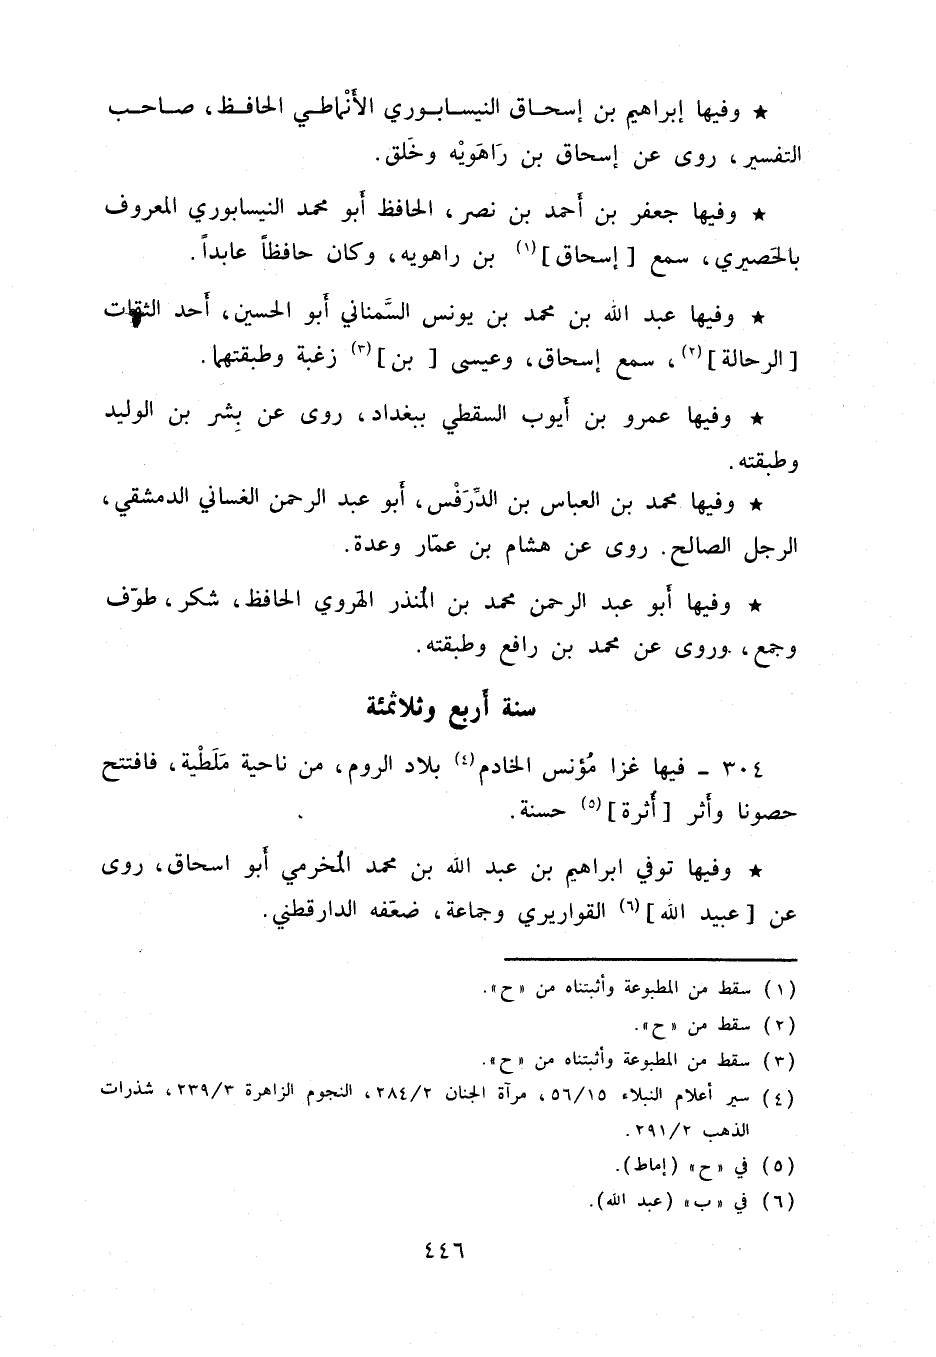 ★ وفيها إبراهيم بن إسحاق النيسابوري الأَنْماطي الحافظ، صاحب
التفسير، روى عن إسحاق بن رَاهَويْه وخَلق.
★ وفيها جعفر بن أَحمد بن نصر، الحافظ أَبو محمد النيسابوري المعروف
بالحَصيري، سمع [ إسحاق ](١) بن راهويه، وكان حافظاً عابداً.
★ وفيها عبد الله بن محمد بن يونس السَّمناني أَبو الحسين، أَحد الثقات
[ الرحالة ](٢)، سمع إسحاق، وعيسى [ بن ](٣) زغبة وطبقتهما.
★ وفيها عمرو بن أَيوب السقطي ببغداد، روى عن بِشر بن الوليد
وطبقته.
★ وفيها محمد بن العباس بن الدِّرَفْس، أَبو عبد الرحمن الغساني الدمشقي،
الرجل الصالح. روى عن هشام بن عمّار وعدة.
★ وفيها أَبو عبد الرحمن محمد بن المُنذر الهَروي الحافظ، شكر، طوّف
وجمع، وروى عن محمد بن رافع وطبقته.
سنة أَربع وثلاثمئة
٣٠٤ - فيها غزا مُؤنس الخادم(٤) بلاد الروم، من ناحية مَلَطْية، فافتتح
حصونا وأَثر [ أُثرة ](٥) حسنة.
★ وفيها توفي ابراهيم بن عبد الله بن محمد المُخرمي أَبو اسحاق، روى
عن [ عبيد الله ](٦) القواريري وجماعة، ضعّفه الدارقطني.
(١) سقط من المطبوعة وأثبتناه من «ح».
(٢) سقط من «ح».
(٣) سقط من المطبوعة وأثبتناه من «ح».
(٤) سير أعلام النبلاء ٥٦/١٥، مرآة الجنان ٢٨٤/٢، النجوم الزاهرة ٢٣٩/٣، شذرات
الذهب ٢٩١/٢.
(٥) في «ح» (إماط).
(٦) في «ب» (عبد الله).
٤٤٦